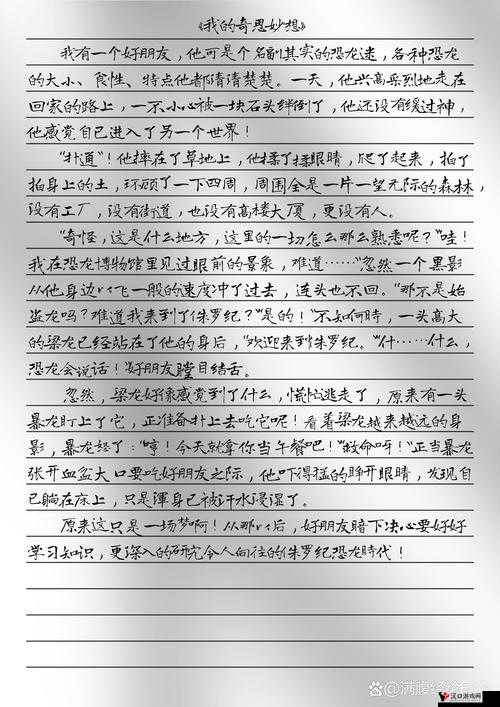 《我的奇思妙想》
我有一个好朋友，他可是个名副其实的恐龙迷，各种恐龙
的大小、食性、特点他都清清楚楚。一天，他兴高采烈地走在
回家的路上，一不小心被一块石头绊倒了，他还没有缓过神，
他感觉自己进入了另一个世界！
“扑通”！他摔在了草地上，他揉了揉眼睛，爬了起来，拍了
拍身上的土，环顾了一下四周，周围全是一片一望无际的森林，
没有工厂，没有街道，也没有高楼大厦，更没有人。
“奇怪，这是什么地方，这里的一切怎么那么熟悉呢？”哇！
我在恐龙博物馆里见过眼前的景象，难道……”忽然一个黑影
从他身边以飞一般的速度冲了过去，连头也不回。“那不是始
盗龙吗？难道我来到了侏罗纪？”是的！”不知何時，一头高大
的梁龙已经站在了他的身后，“欢迎来到侏罗纪。”什……什么，
恐龙会说话！”好朋友瞠目结舌。
忽然，梁龙好像感觉到了什么，慌忙逃走了，原来有一头
暴龙盯上了它，正准备扑上去吃它呢！看着梁龙越来越远的身
影，暴龙怒了：“哼！今天就拿你当午餐吧！”“救命呀！”正当暴龙
张开血盆大口要吃好朋友之际，他吓得猛的睁开眼睛，发现自
己躺在床上，只是渾身已被汗水浸湿了。
原来这只是一场梦啊！从那以后，好朋友暗下决心要好好
学习知识，更深入的研究令人向往的侏罗纪恐龙時代！
汉口游戏网